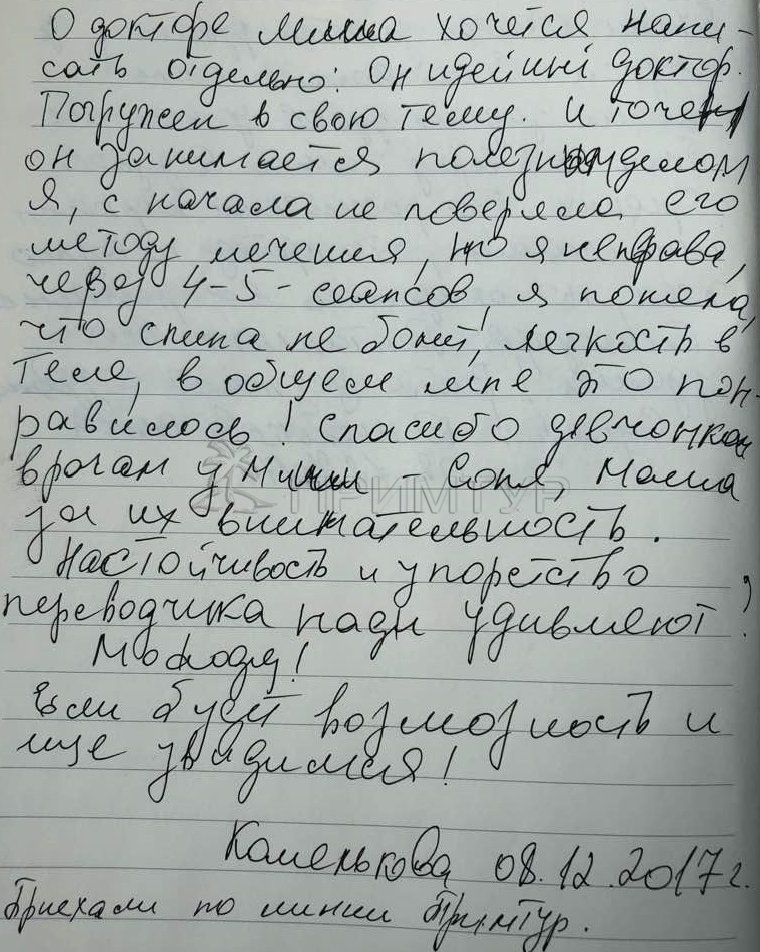 О докторе Миша хочется напи-
сать отдельно: Он идейный доктор.
Погружен в свою тему. И точен
он занимается полезным делом
Я, с начала не поверяла его
методу лечения, но я неправа,
через 4-5-сеансов, я поняла,
что спина не болит, легкость в
теле, в общем мне это пон-
равилось! Спасибо девчонкам
врачам у Миши - Соня, Маша
ПРИМТУР
за их внимательность.
Настойчивость и упорство
переводчика Нади удивляют!
Молодец!
Если будет возможность и
еще увидимся!
Каменькова 08.12.2017г.
Приехали по линии Примтур.